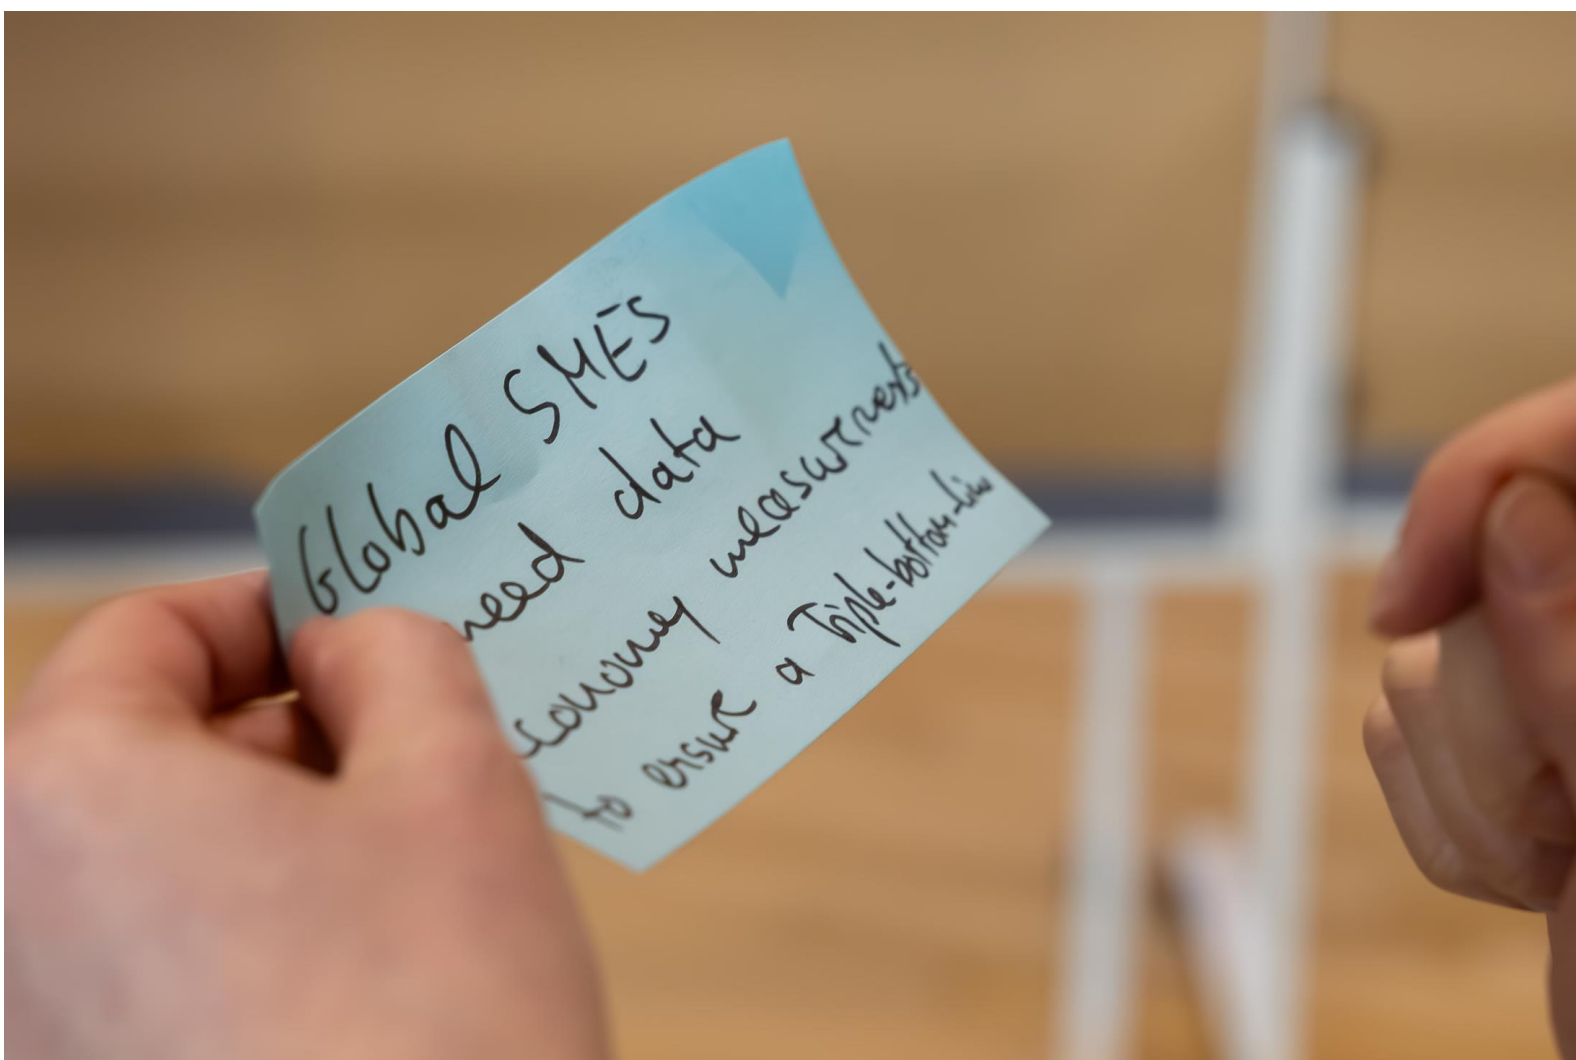 Global SMEs
need data
economy measurements
to ensure a Triple-bottom-line